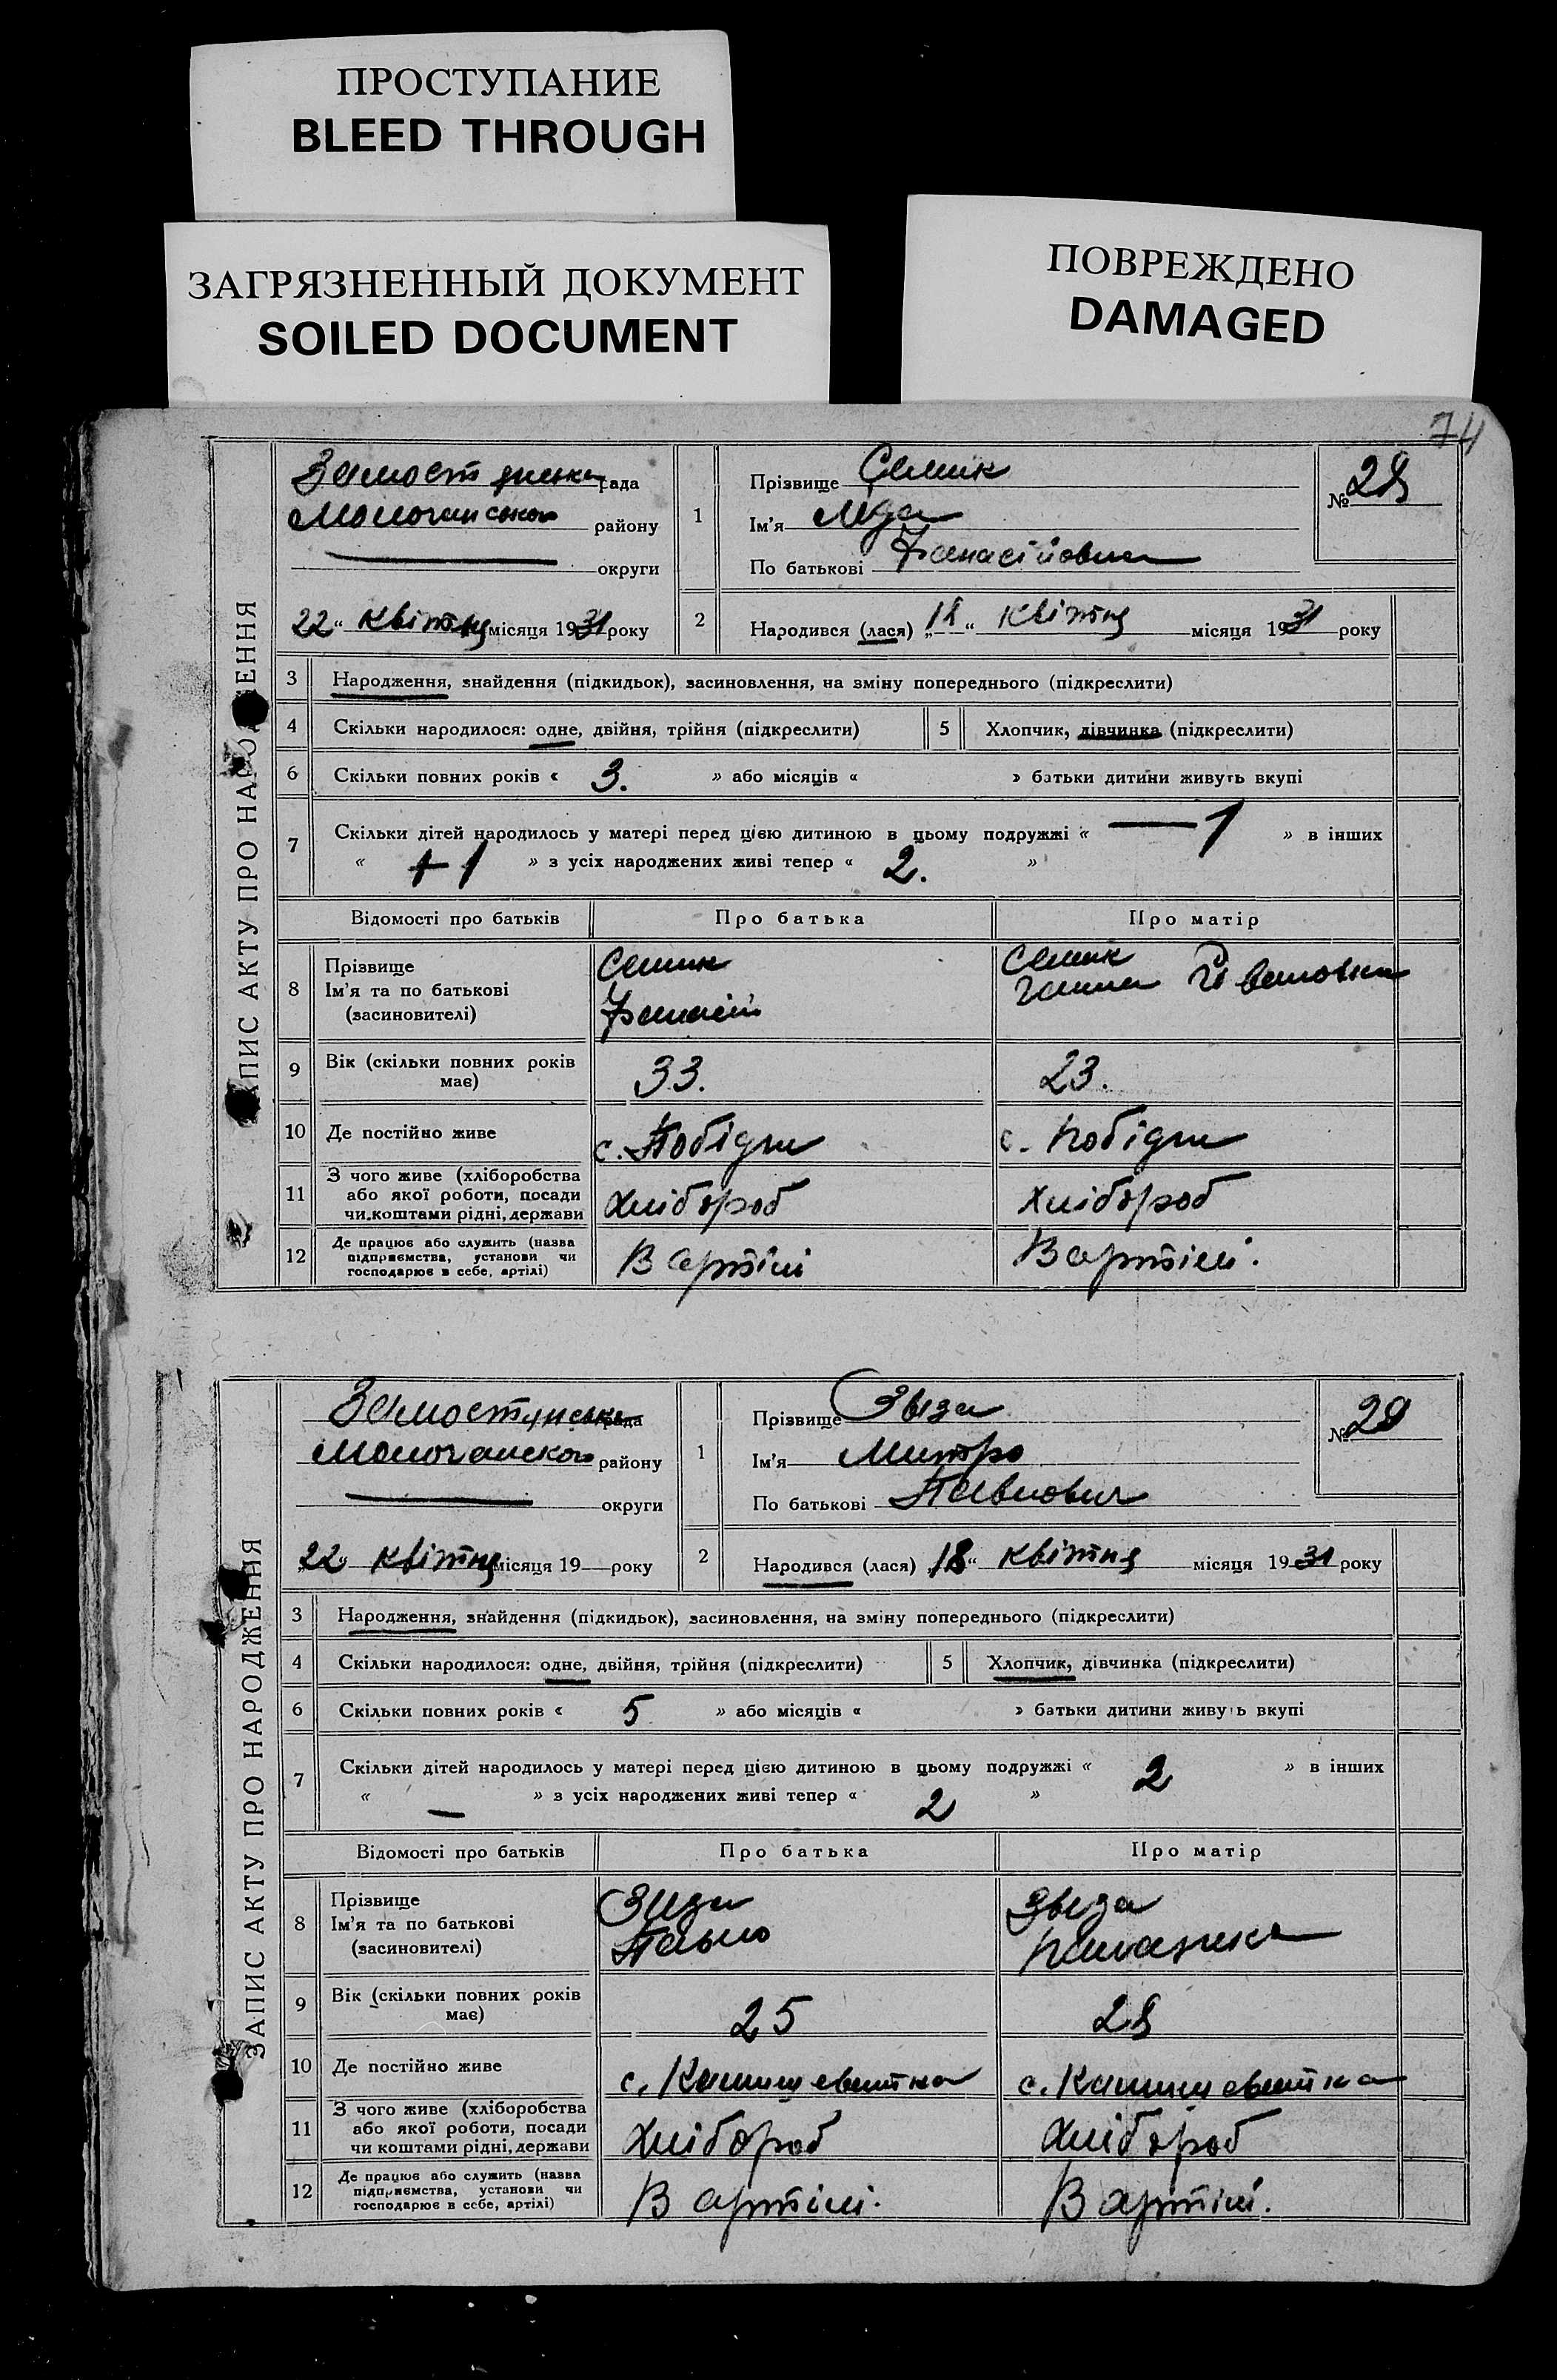 ПРОСТУПАНИЕ
BLEED THROUGH
ЗАГРЯЗНЕННЫЙ ДОКУМЕНТ
SOILED DOCUMENT
ПОВРЕЖДЕНО
DAMAGED
74
ПИС АКТУ ПРО НАРО ЕННЯ
рада
району
округи
22 “ квітня місяця 1931 року
1
Прізвище Семик
Ім'я Ліда
По батькові Фанасіївна
№ 28
2
Народився (лася) „18“ квітня місяця 1931 року
3 Народження, знайдення (підкидьок), засиновлення, на зміну попереднього (підкреслити)
4 Скільки народилося: одне, двійня, трійня (підкреслити) 5 Хлопчик, дівчинка (підкреслити)
6 Скільки повних років « 3. » або місяців « » батьки дитини живуть вкупі
7 Скільки дітей народилось у матері перед цією дитиною в цьому подружжі « — 1 » в інших
« + 1 » з усіх народжених живі тепер « 2. »
Відомості про батьків Про батька Про матір
8 Прізвище Семик Семик
Ім'я та по батькові Фанасій Ганна Ивановна
(засиновителі)
9 Вік (скільки повних років має) 33. 23.
10 Де постійно живе с. Побідти с. Побідти
11 З чого живе (хліборобства або якої роботи, посади чи коштами рідні, держави Хлібороб Хлібороб
12 Де працює або служить (назва підприємства, установи чи господарює в себе, артілі) В артілі В артілі.
ЗАПИС АКТУ ПРО НАРОДЖЕННЯ
рада
району
округи
22 квітня місяця 19 року
1
Прізвище Звеза
Ім'я Митро
По батькові Павлович
№ 29
2
Народився (лася) „18“ квітня місяця 1931 року
3 Народження, знайдення (підкидьок), засиновлення, на зміну попереднього (підкреслити)
4 Скільки народилося: одне, двійня, трійня (підкреслити) 5 Хлопчик, дівчинка (підкреслити)
6 Скільки повних років « 5 » або місяців « » батьки дитини живуть вкупі
7 Скільки дітей народилось у матері перед цією дитиною в цьому подружжі « 2 » в інших
« — » з усіх народжених живі тепер « 2 »
Відомості про батьків Про батька Про матір
8 Прізвище Звеза
Ім'я та по батькові Павло
(засиновителі)
9 Вік (скільки повних років має) 25 28
10 Де постійно живе с. с.
11 З чого живе (хліборобства або якої роботи, посади чи коштами рідні, держави Хлібороб Хлібороб
12 Де працює або служить (назва підприємства, установи чи господарює в себе, артілі) В артілі. В артілі.